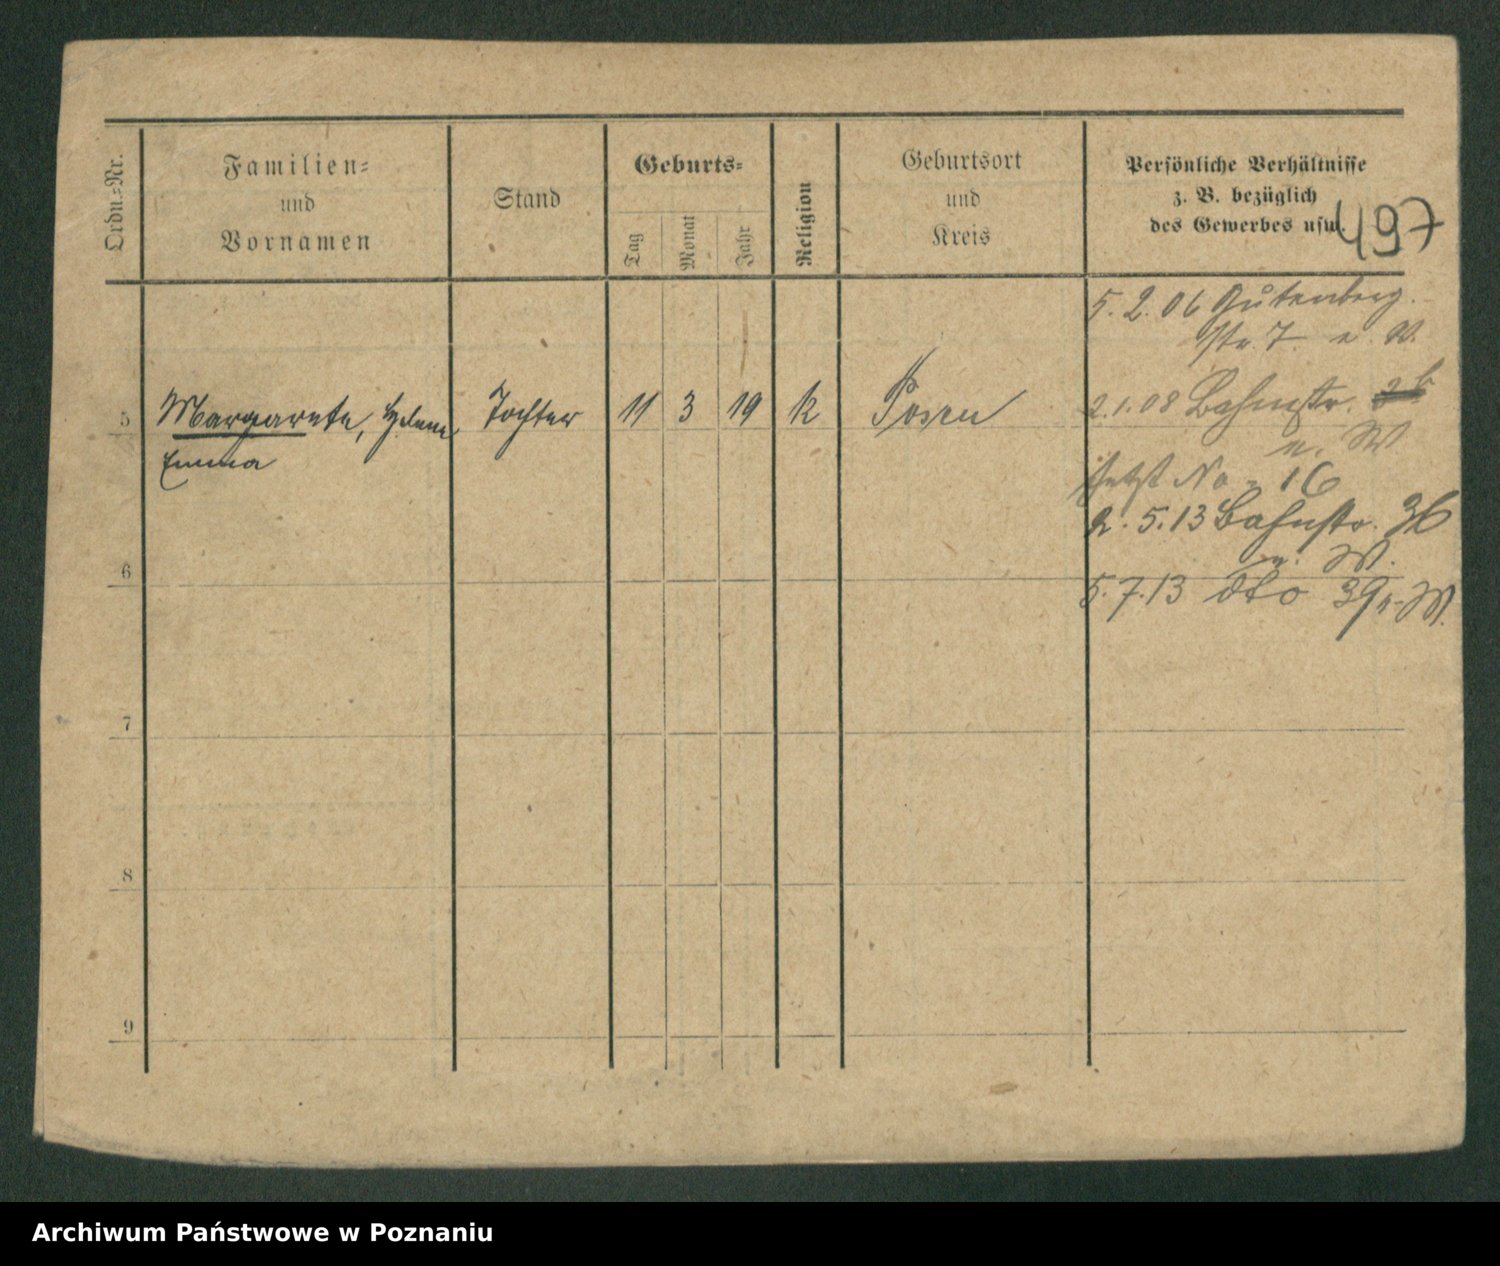 Ordn.=Nr.
Familien=
und
Vornamen
Stand
Geburts=
Tag
Monat
Jahr
Religion
Geburtsort
und
Kreis
Persönliche Verhältnisse
z. B. bezüglich
des Gewerbes usw.
497
5. 2. 06 Gutenberg
str. 7. n. W.
5
Margarete,
Emma
Tochter
11
3
19
k
Posen
2. 1. 08 Bahnstr.
n. W
jetzt No 16
2. 5. 13 Bahnstr. 36
n. W.
6
5. 7. 13 dto 39 n. W.
7
8
9
Archiwum Państwowe w Poznaniu